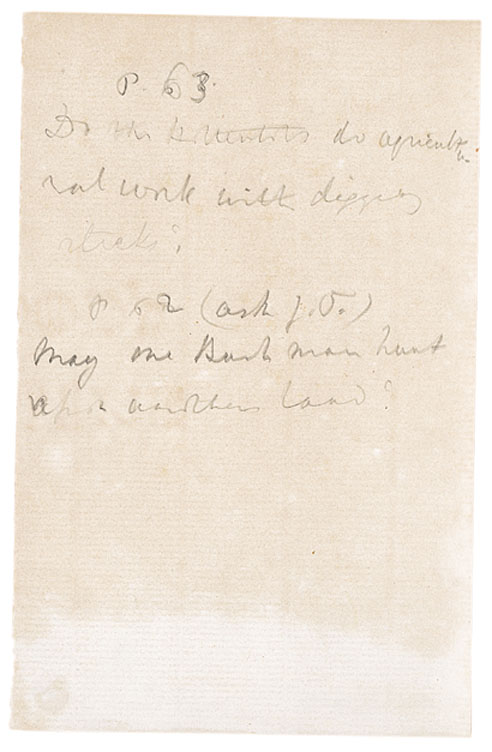 p. 63.
Do the Hottentots do agricultu
ral work with digging
sticks?
p 62 (ask J.T.)
May one Bushman hunt
upon another's land?